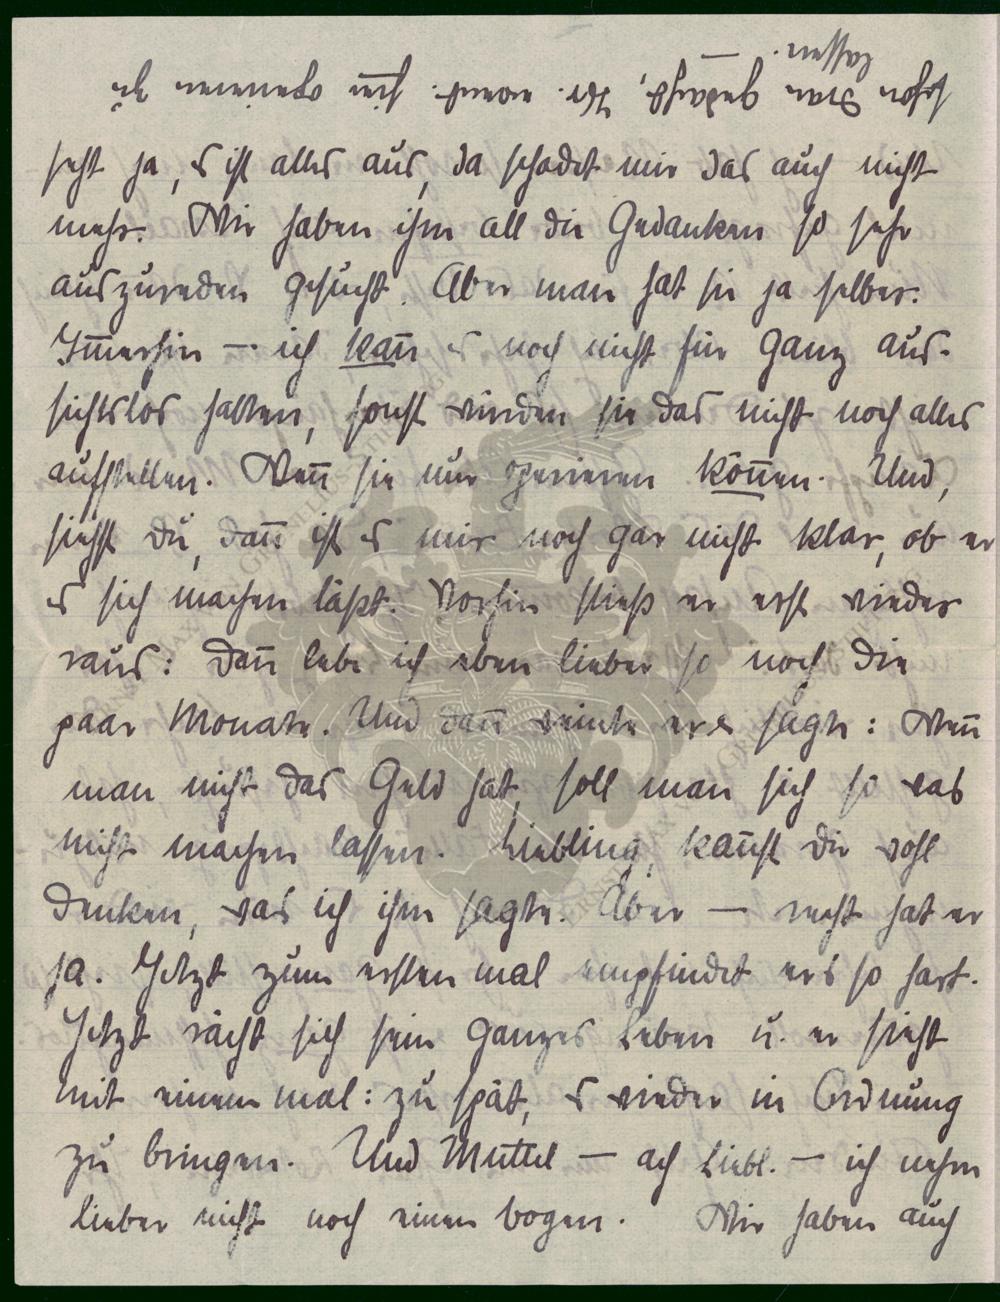 seht ja, es ist alles aus, da schadet mir das auch nicht
mehr. Wir haben ihm all die Gedanken so sehr
auszureden gesucht. Aber man hat sie ja selber.
Im̅erhin — ich kan̅ es noch nicht für ganz aus-
sichtslos halten, sonst würden sie das nicht noch alles
aufstellen. Wen̅ sie nur operieren kön̅en. Und,
siehst Du, dan̅ ist es mir noch gar nicht klar, ob er
es sich machen läßt. Vorhin stieß er erst wieder
raus: Dan̅ lebe ich eben lieber so noch die
paar Monate. Und dan̅ weinte er & sagte: Wen̅
man nicht das Geld hat, soll man sich so was
nicht machen lassen. Liebling, kan̅st Dir wohl
denken, was ich ihm sagte. Aber — recht hat er
ja. Jetzt zum ersten mal empfindet er's so hart.
Jetzt rächt sich sein ganzes Leben u. er sieht
mit einem mal: zu spät, es wieder in Ordnung
zu bringen. Und Muttel — ach Liebl. — ich nehm
lieber nicht noch einen bogen. Wir haben auch
schon dran gedacht, ihn operieren zu
lassen. —